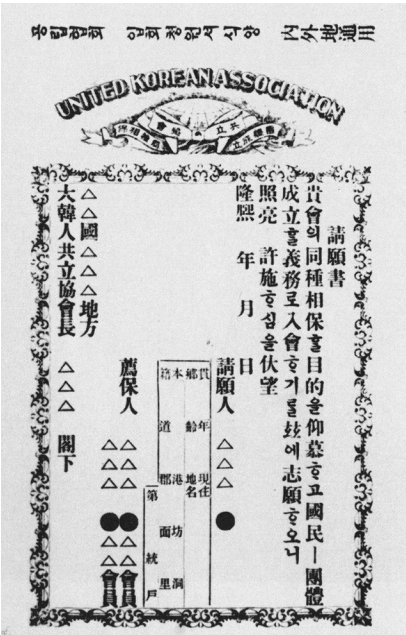 공립협회 입회청원서 식양 內外地通用
UNITED KOREAN ASSOCIATION
請願書
貴會의同種相保ᄒᆞᆯ目的을仰慕ᄒᆞ고國民一團體
成立ᄒᆞᆯ義務로入會ᄒᆞ기를玆에志願ᄒᆞ오니
照亮 許施ᄒᆞ심을伏望
隆熙 年 月 日
請願人 △△△ ●
貫 年 現住
鄕 齡 地名
本 港 坊 洞
籍 道 郡 面 里
第 統 戶
薦保人 △△△●△△會員
△△△●△△會員
△△國△△△地方
大韓人共立協會長 △△△ 閣下